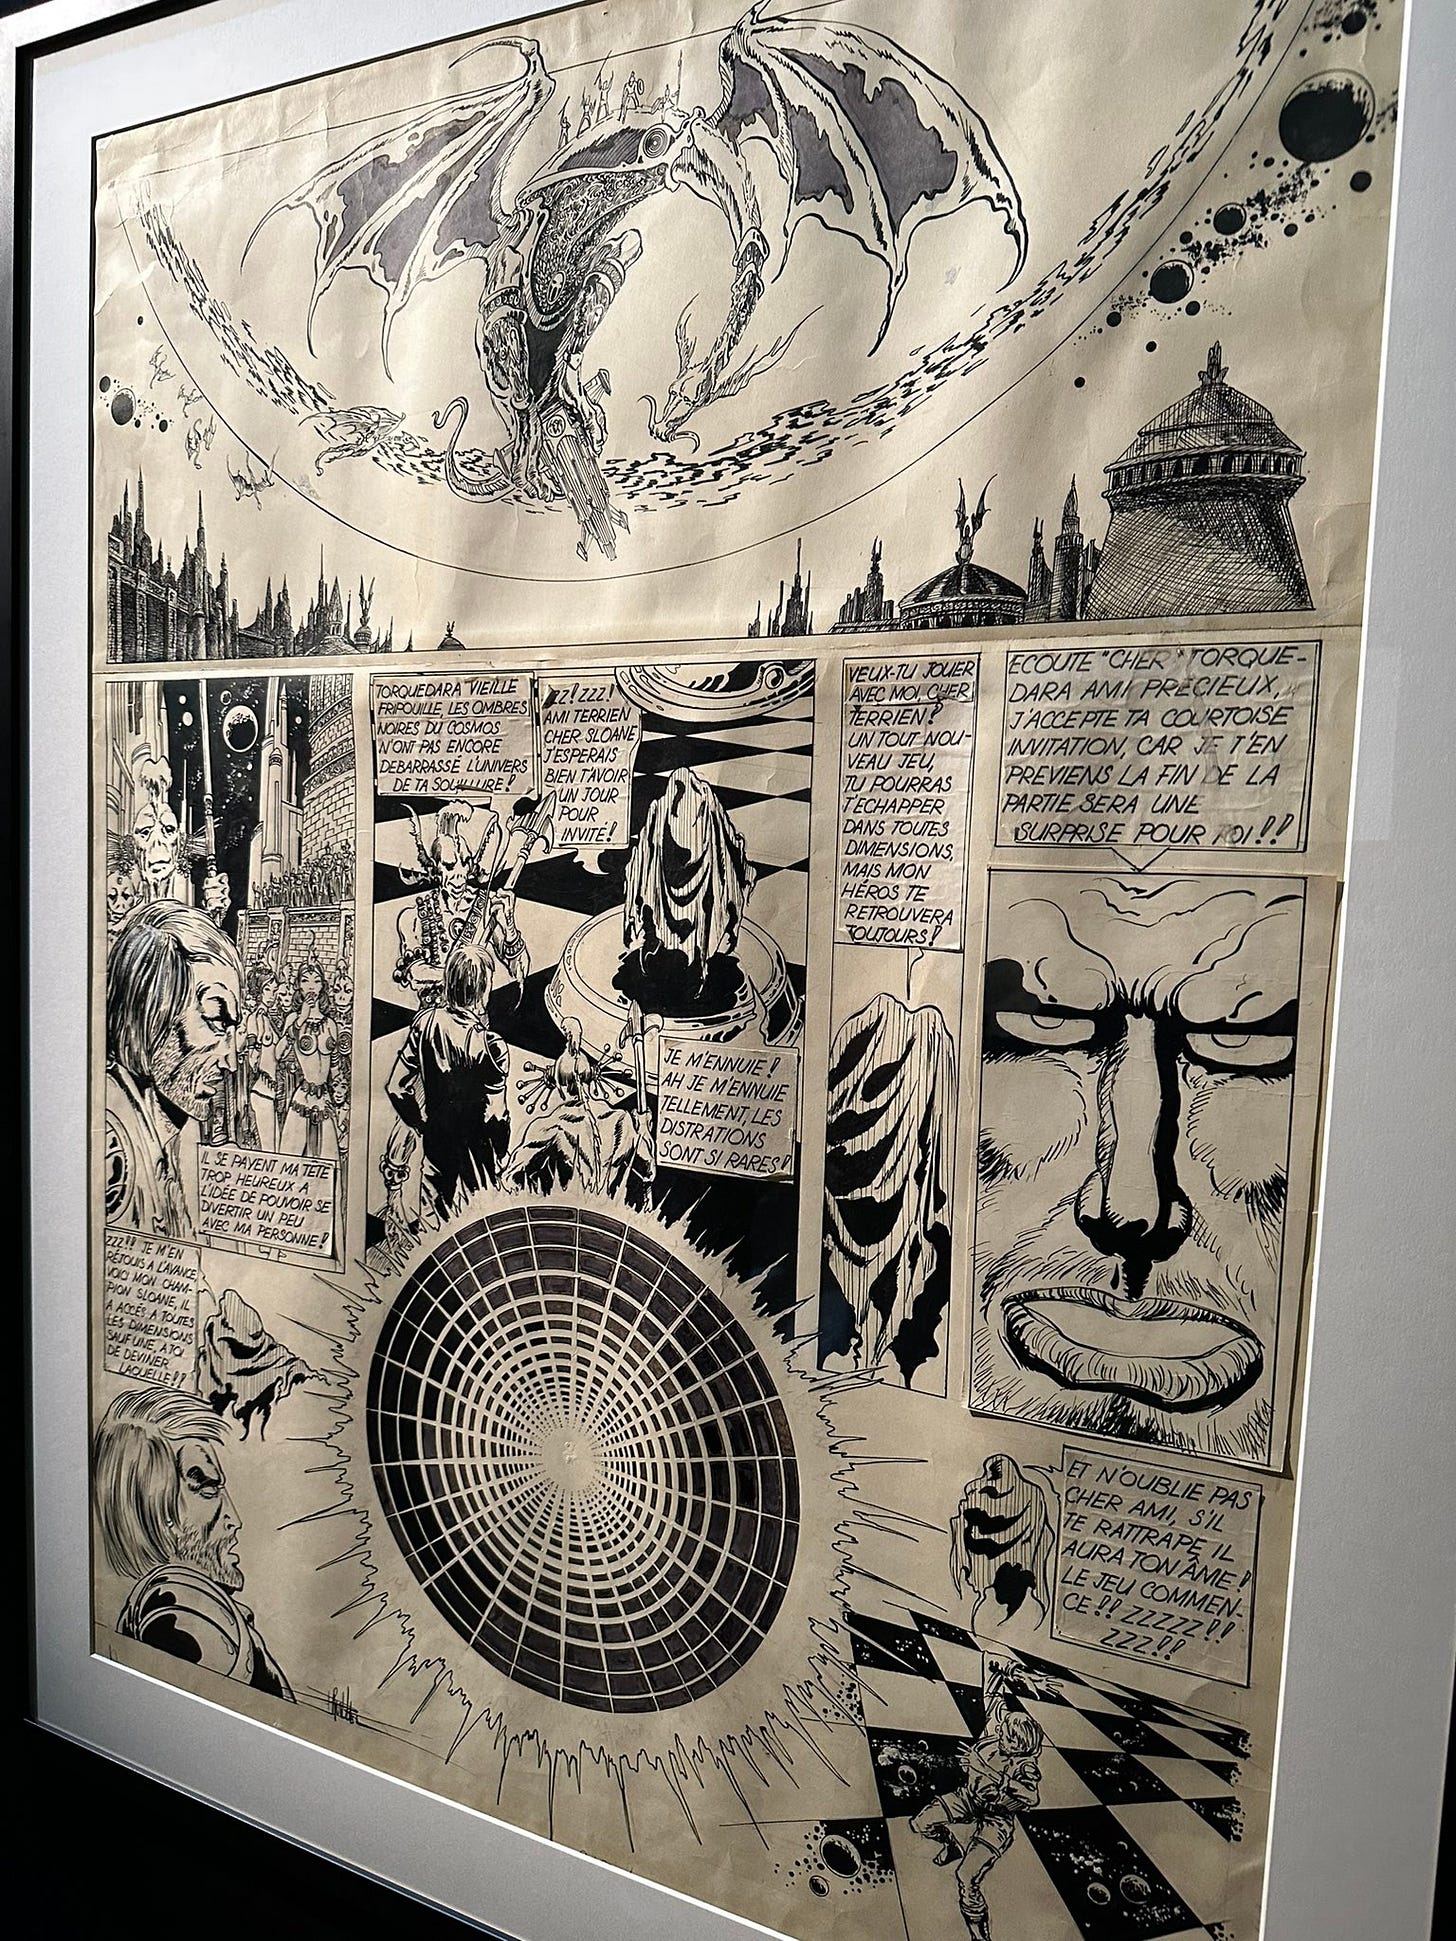 IL SE PAYENT MA TÊTE
TROP HEUREUX A
L'IDÉE DE POUVOIR SE
DIVERTIR UN PEU
AVEC MA PERSONNE!
TORQUEDARA VIEILLE
FRIPOUILLE, LES OMBRES
NOIRES DU COSMOS
N'ONT PAS ENCORE
DEBARRASSÉ L'UNIVERS
DE TA SOUILLURE!
ZZ! ZZZ!
AMI TERRIEN
CHER SLOANE
J'ESPERAIS
BIEN T'AVOIR
UN JOUR
POUR
INVITÉ!
JE M'ENNUIE!
AH JE M'ENNUIE
TELLEMENT, LES
DISTRATIONS
SONT SI RARES!
VEUX-TU JOUER
AVEC MOI, CHER
TERRIEN?
UN TOUT NOU-
VEAU JEU,
TU POURRAS
T'ECHAPPER
DANS TOUTES
DIMENSIONS,
MAIS MON
HÉROS TE
RETROUVERA
TOUJOURS!
ECOUTE "CHER" TORQUE-
DARA AMI PRÉCIEUX,
J'ACCEPTE TA COURTOISE
INVITATION, CAR JE T'EN
PREVIENS LA FIN DE LA
PARTIE SERA UNE
SURPRISE POUR TOI!!
ZZZ!! JE M'EN
RÉJOUIS A L'AVANCE,
VOICI MON CHAM-
PION SLOANE, IL
A ACCÉS A TOUTES
LES DIMENSIONS
SAUF UNE, A TOI
DE DEVINER
LAQUELLE!!
ET N'OUBLIE PAS
CHER AMI, S'IL
TE RATTRAPE IL
AURA TON ÂME!
LE JEU COMMEN-
CE!! ZZZZZ!!
ZZZ!!